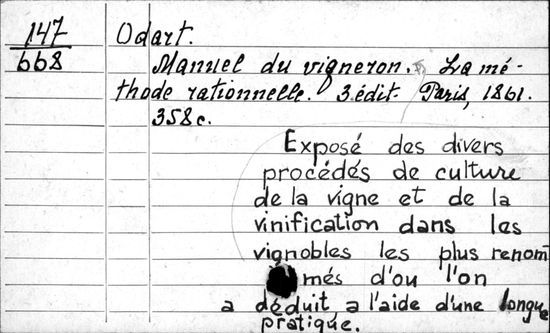 147
668
Odart.
Manuel du vigneron. La mé-
thode rationnelle. 3.édit. Paris, 1861.
358c.
Exposé des divers
procédés de culture
de la vigne et de la
vinification dans les
vignobles les plus renom
més d'ou l'on
a déduit a l'aide d'une longue
pratique.